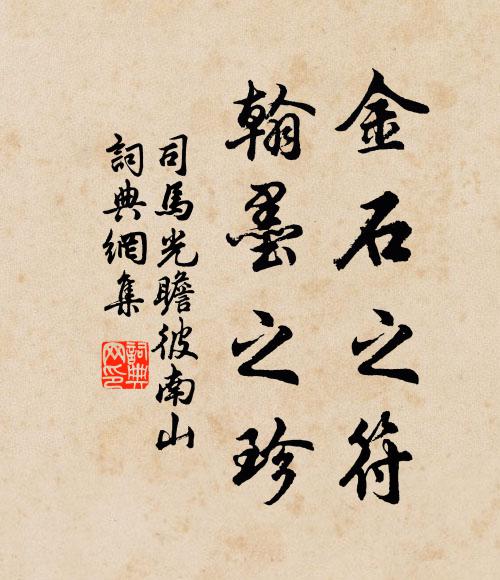 金石之符
翰墨之珍
司馬光瞻彼南山
詞典網集
詞典網印